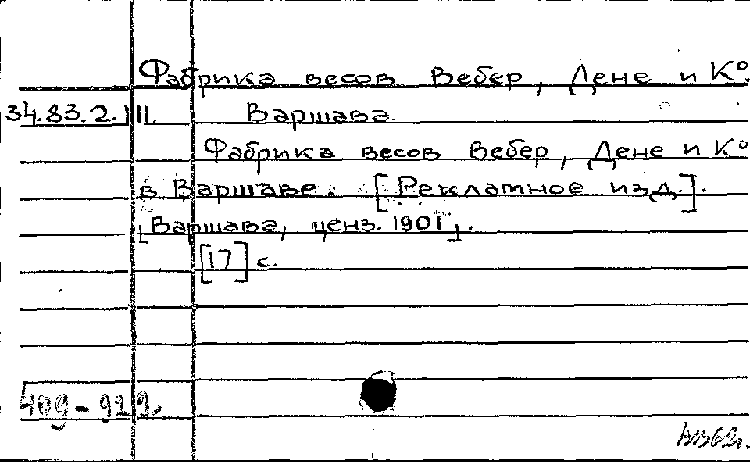 Фабрика весов Вебер, Дене и К⁰.
34.83.2.III. Варшава.
Фабрика весов Вебер, Дене и К⁰
в Варшаве. [Рекламное изд.].
[Варшава, ценз. 1901].
[17] с.